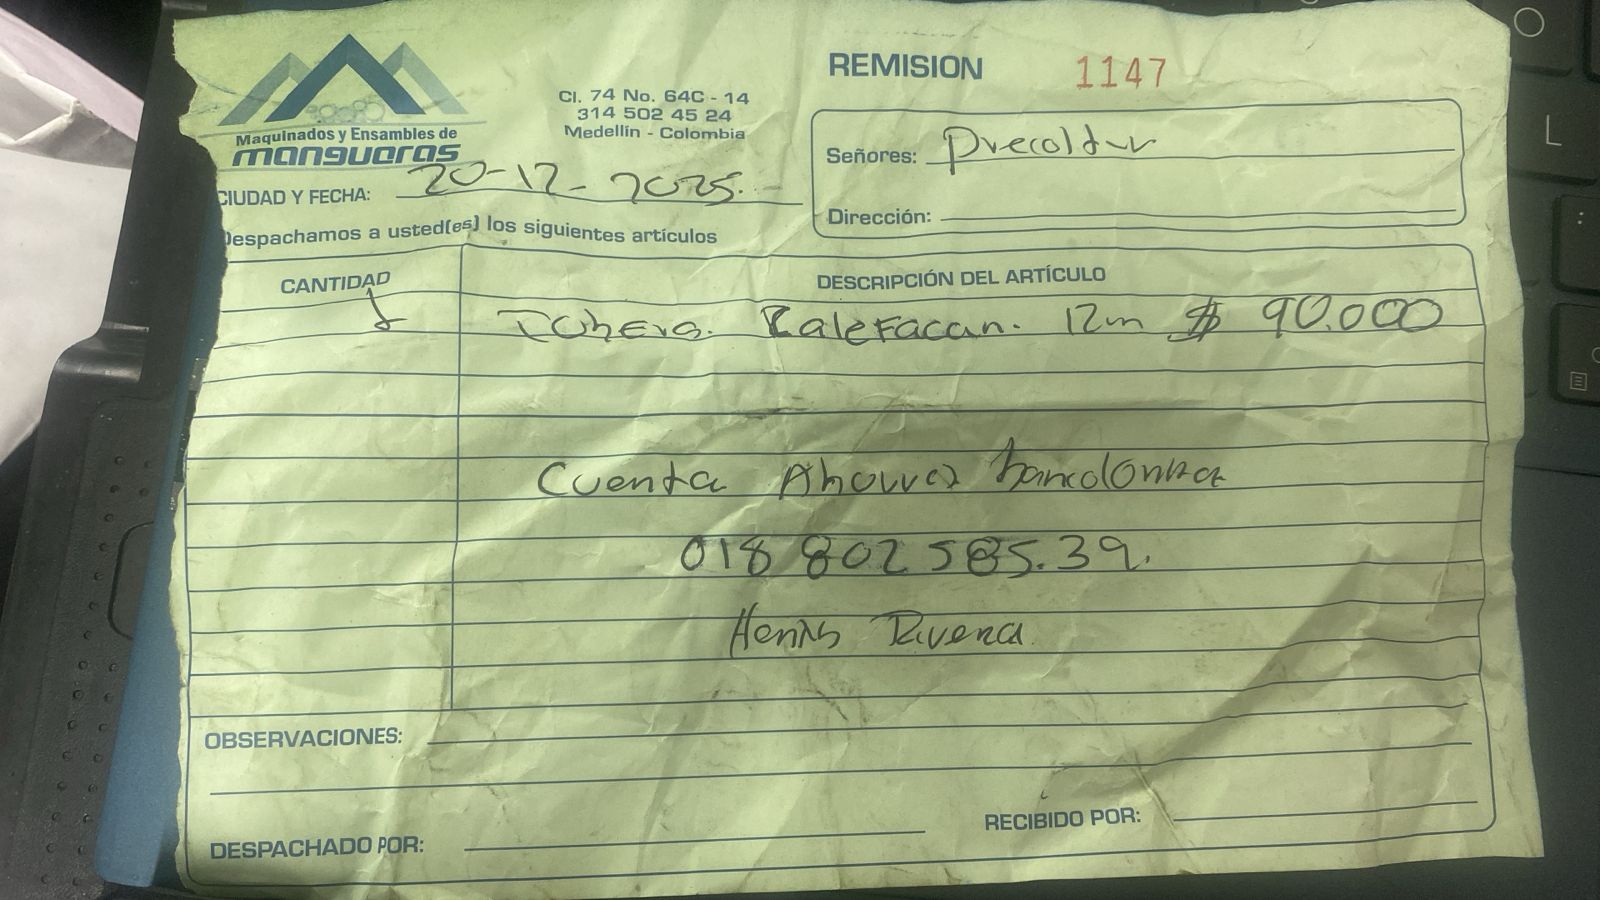 Maquinados y Ensambles de
mangueras
Cl. 74 No. 64C - 14
314 502 45 24
Medellín - Colombia
REMISION 1147
Señores: Precoltur
Dirección:
CIUDAD Y FECHA: 20-12-2025.
Despachamos a usted(es) los siguientes artículos
CANTIDAD DESCRIPCIÓN DEL ARTÍCULO
1 12m $ 90.000
Cuenta Ahorros bancolombia
018 802 585.39.
Rivera
OBSERVACIONES:
DESPACHADO POR:
RECIBIDO POR: